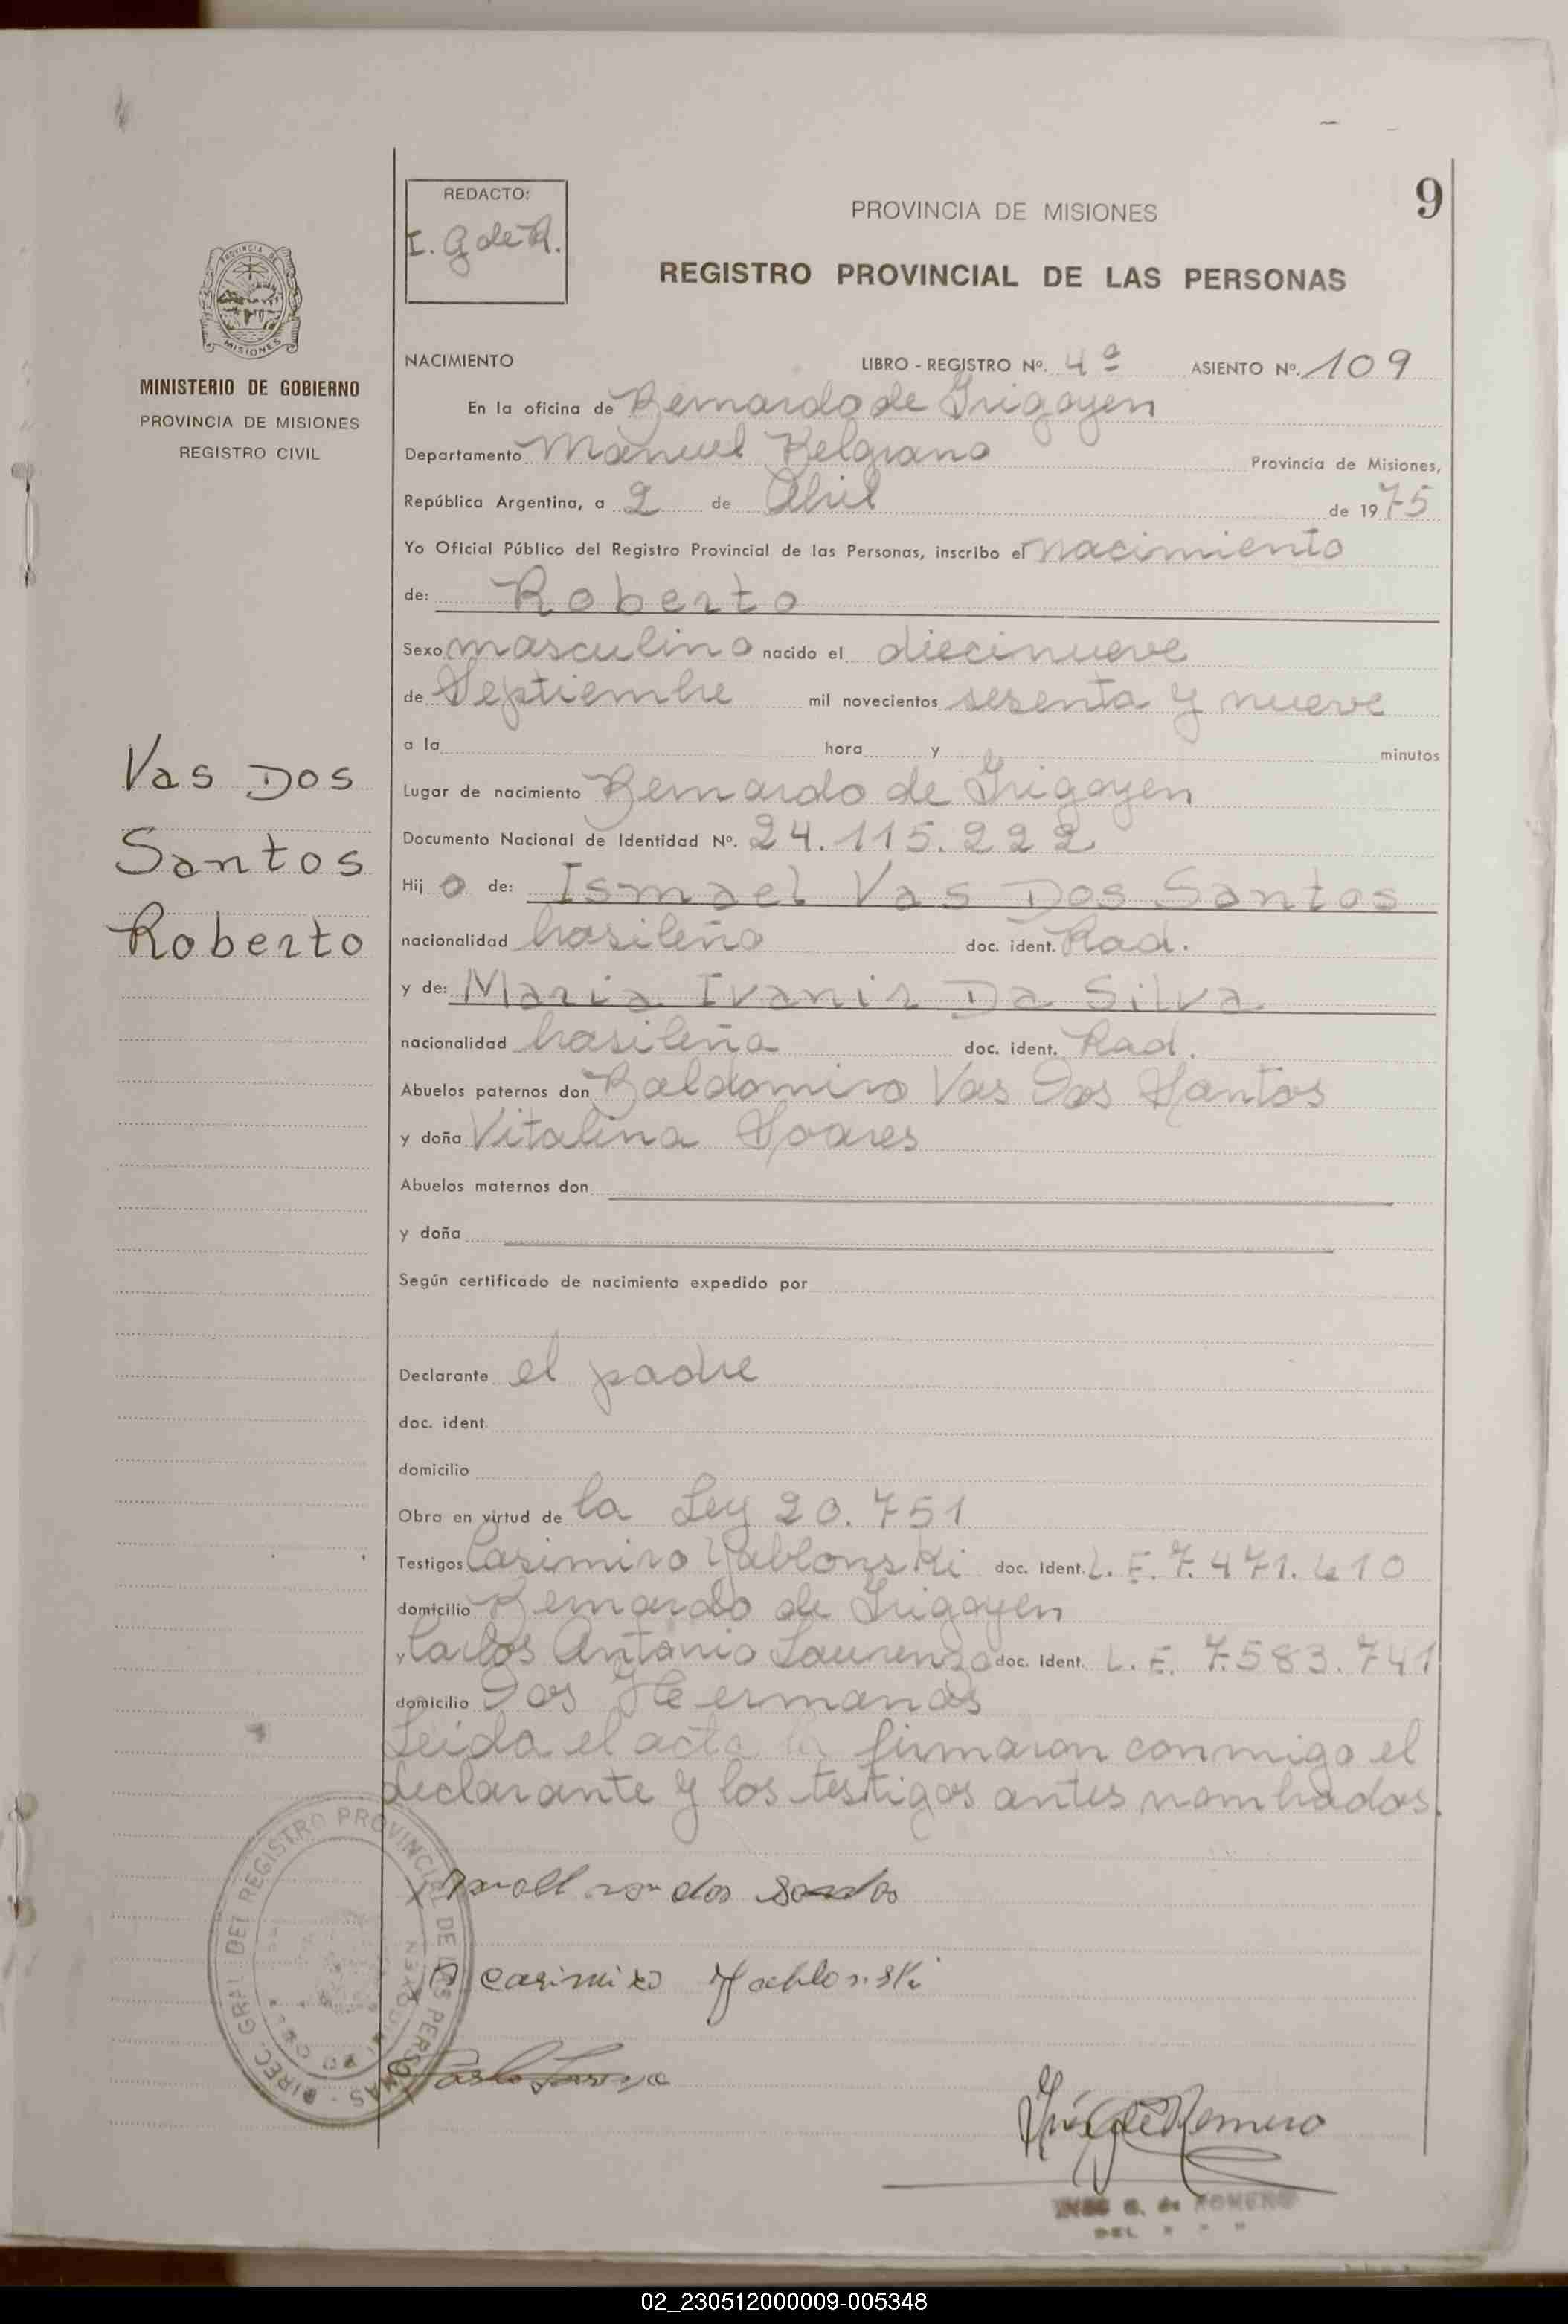 9
REDACTO:
I. G de R.
PROVINCIA DE MISIONES
REGISTRO PROVINCIAL DE LAS PERSONAS
PROVINCIA DE
MISIONES
MINISTERIO DE GOBIERNO
PROVINCIA DE MISIONES
REGISTRO CIVIL
NACIMIENTO LIBRO - REGISTRO Nº. 4º ASIENTO Nº. 109
En la oficina de Bernardo de Irigoyen
Departamento Manuel Belgrano Provincia de Misiones,
República Argentina, a 2 de Abril de 1975
Yo Oficial Público del Registro Provincial de las Personas, inscribo el nacimiento
de: Roberto
Sexo masculino nacido el diecinueve
de Septiembre mil novecientos sesenta y nueve
a la hora y minutos
Vas Dos
Santos
Roberto
Lugar de nacimiento Bernardo de Irigoyen
Documento Nacional de Identidad Nº. 24.115.222
Hijo de: Ismael Vas Dos Santos
nacionalidad brasileño doc. ident. Rad.
y de: Maria Ivanir Da Silva
nacionalidad brasileña doc. ident. Rad.
Abuelos paternos don Baldomiro Vas Dos Santos
y doña Vitalina Soares
Abuelos maternos don
y doña
Según certificado de nacimiento expedido por
Declarante el padre
doc. ident.
domicilio
Obra en virtud de la Ley 20.751
Testigos Casimiro Yablonski doc. Ident. L. E. 7.471.610
domicilio Bernardo de Irigoyen
y Carlos Antonio Laurenzo doc. Ident. L. E. 7.583.741
domicilio Dos Hermanas
Leida el acta la firmaron conmigo el
declarante y los testigos antes nombrados.
dos Santos
Casimiro Yablonski
DIREC. GRAL. DEL REGISTRO PROVINCIAL DE LAS PERSONAS
Inés G de Romero
INES G. de ROMERO
02_230512000009-005348